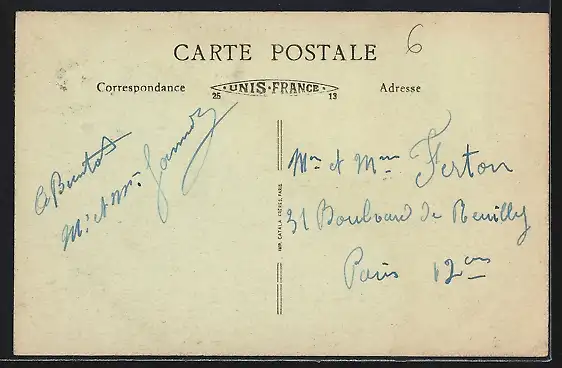 6
CARTE POSTALE
Correspondance
UNIS-FRANCE
Adresse
25 13
A Bientot
Mr et Mme
Mr et Mme Ferton
31 Boulevard de Reuilly
Paris 12ème
IMP. CATALA FRÈRES, PARIS